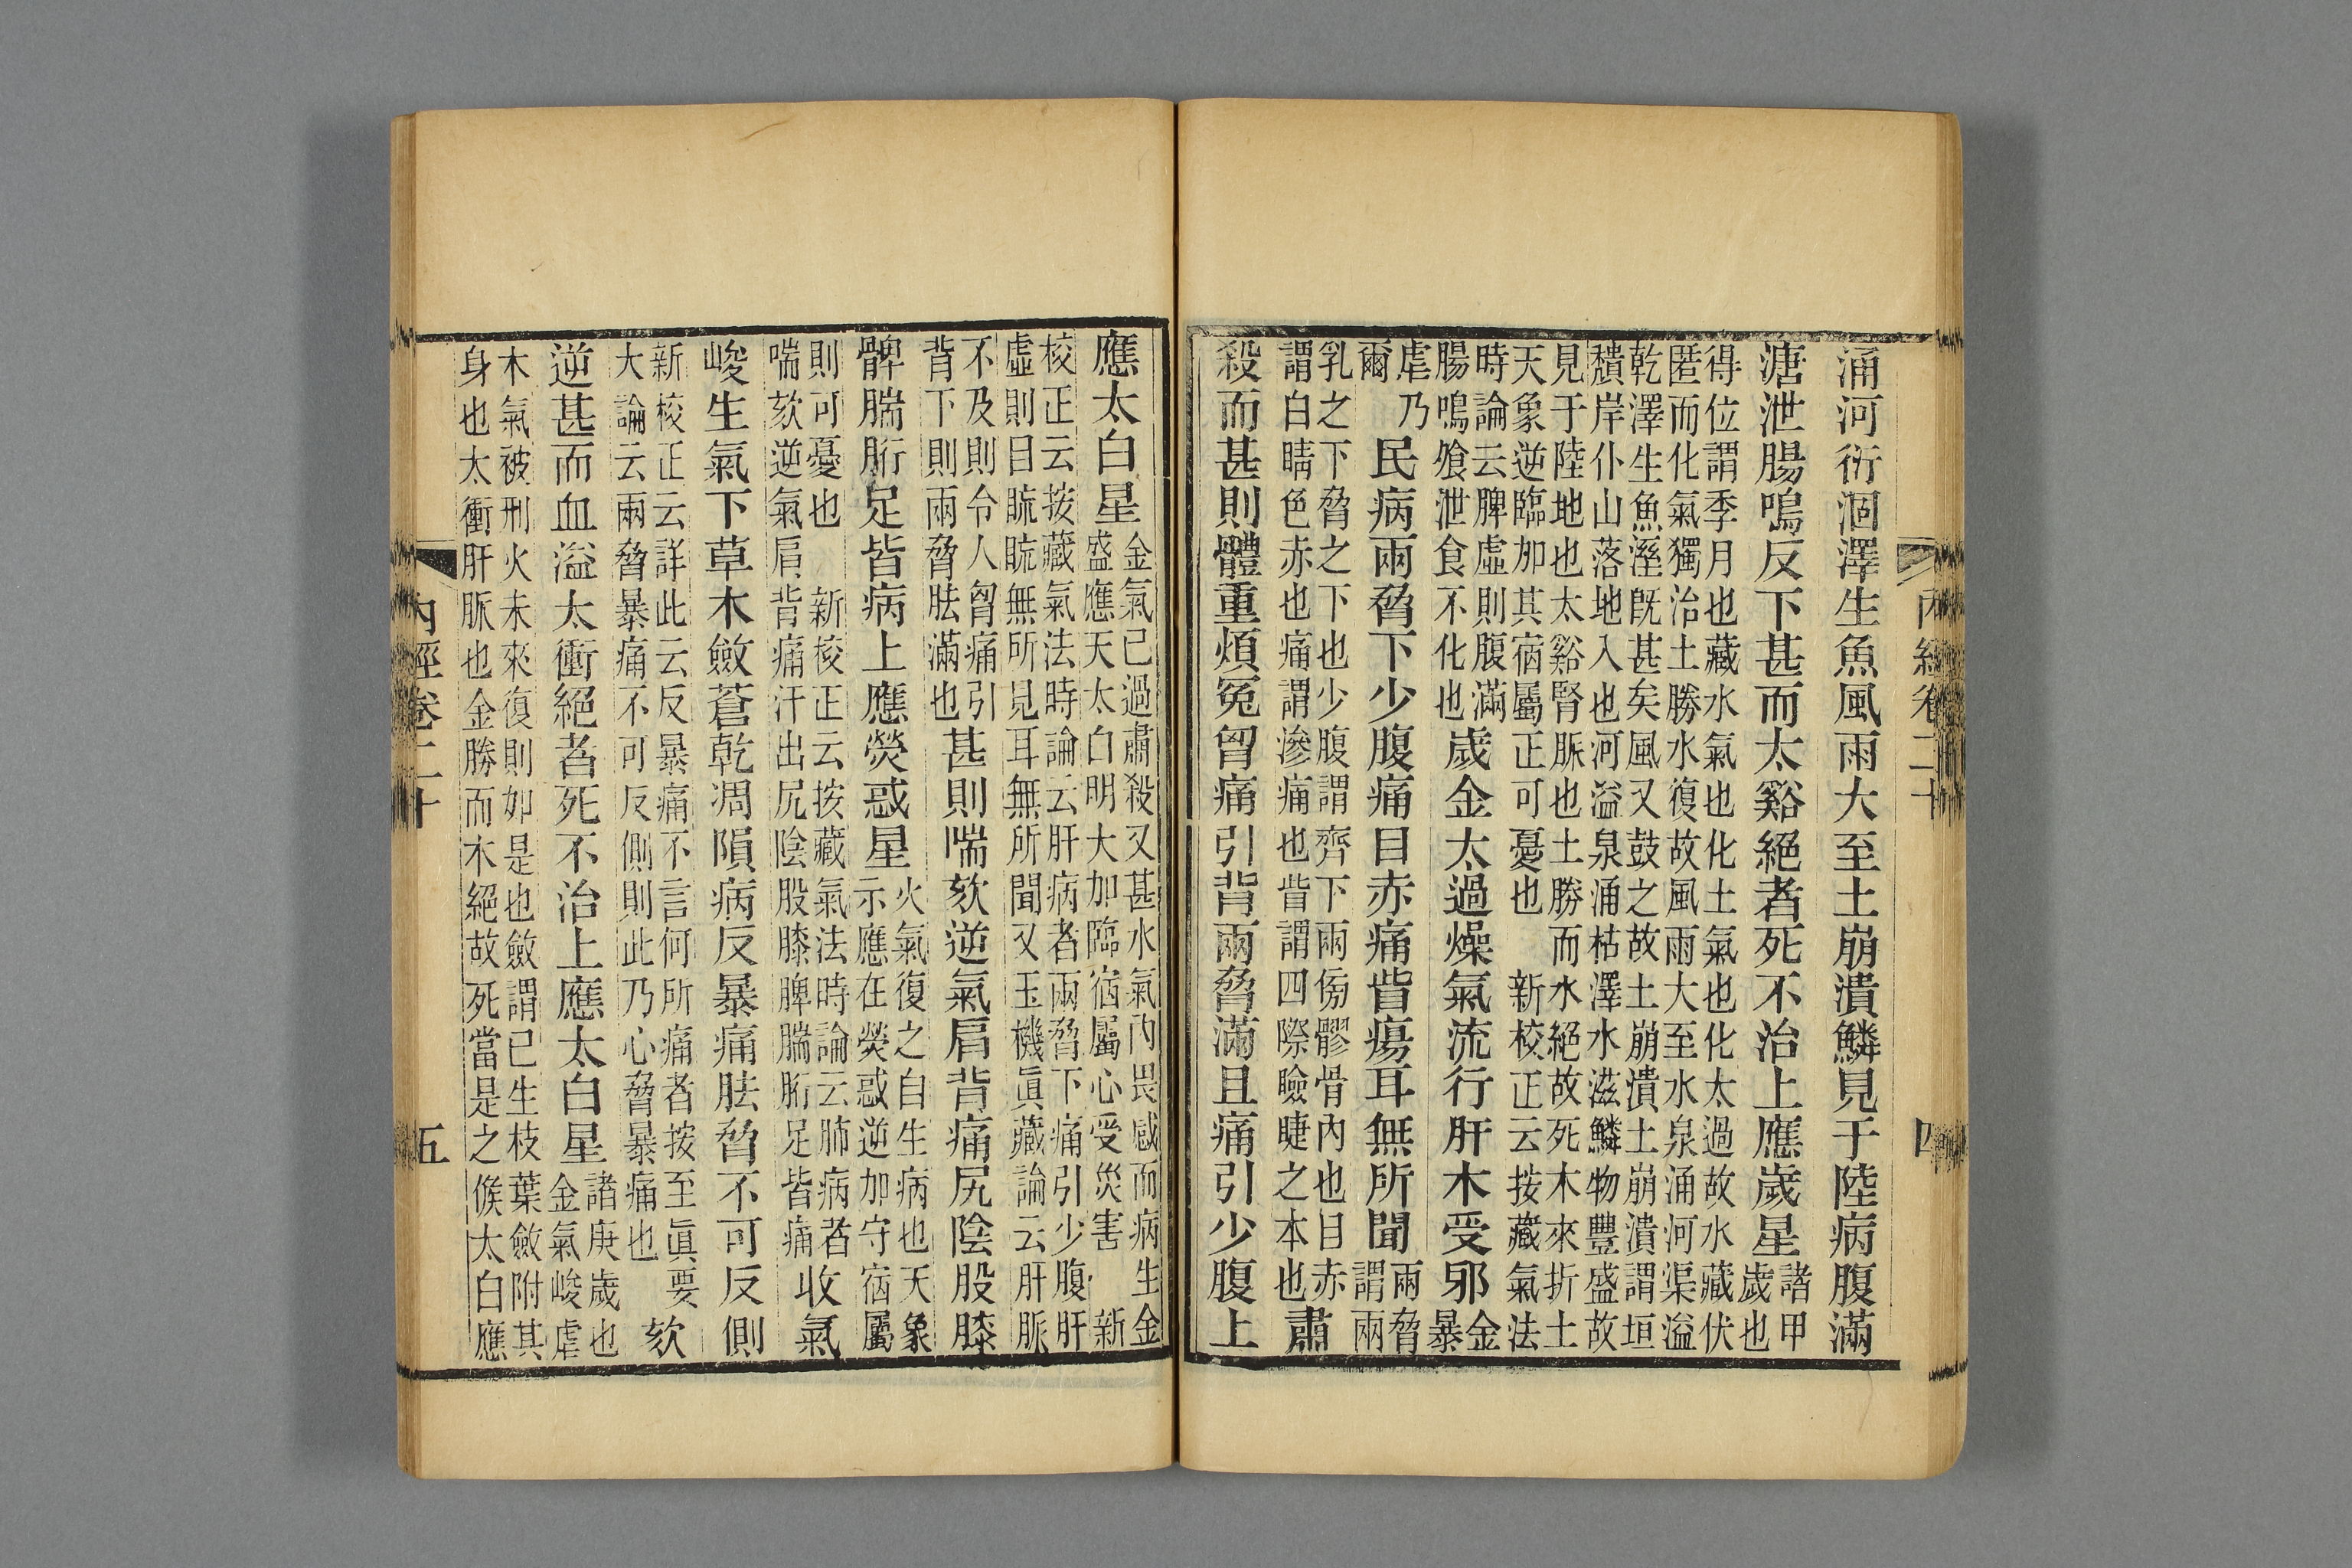 內經卷二十 四
涌河衍涸澤生魚風雨大至土崩潰鱗見于陸病腹滿
溏泄腸鳴反下甚而太谿絕者死不治上應歲星
諸甲
歲也
得位謂季月也藏水氣也化土氣也化太過故水藏伏
匿而化氣獨治土勝水復故風雨大至水泉涌河渠溢
乾澤生魚溼既甚矣風又鼓之故土崩潰土崩潰謂垣
穨岸仆山落地入也河溢泉涌枯澤水滋鱗物豐盛故
見于陸地也太谿腎脈也土勝而水絕故死木來折土
天象逆臨加其宿屬正可憂也 新校正云按藏氣法
時論云脾虛則腹滿
腸鳴飧泄食不化也
歲金太過燥氣流行肝木受邪
金
暴
虐乃
爾
民病兩脅下少腹痛目赤痛眥瘍耳無所聞
兩脅
謂兩
乳之下脅之下也少腹謂齊下兩傍髎骨內也目赤
謂白睛色赤也痛謂滲痛也眥謂四際瞼睫之本也
肅
殺而甚則體重煩冤胷痛引背兩脅滿且痛引少腹上
應太白星
金氣已過肅殺又甚水氣內畏感而病生金
盛應天太白明大加臨宿屬心受災害 新
校正云按藏氣法時論云肝病者兩脅下痛引少腹肝
虛則目䀮䀮無所見耳無所聞又玉機眞藏論云肝脈
不及則令人胷痛引
背下則兩脅胠滿也
甚則喘欬逆氣肩背痛尻陰股膝
髀腨胻足皆病上應熒惑星
火氣復之自生病也天象
示應在熒惑逆加守宿屬
則可憂也 新校正云按藏氣法時論云肺病者
喘欬逆氣肩背痛汗出尻陰股膝髀腨胻足皆痛
收氣
峻生氣下草木斂蒼乾凋隕病反暴痛胠脅不可反側
新校正云詳此云反暴痛不言何所痛者按至眞要
大論云兩脅暴痛不可反側則此乃心脅暴痛也
欬
逆甚而血溢太衝絕者死不治上應太白星
諸庚歲也
金氣峻虐
木氣被刑火未來復則如是也斂謂已生枝葉斂附其
身也太衝肝脈也金勝而木絕故死當是之候太白應
內經卷二十 五